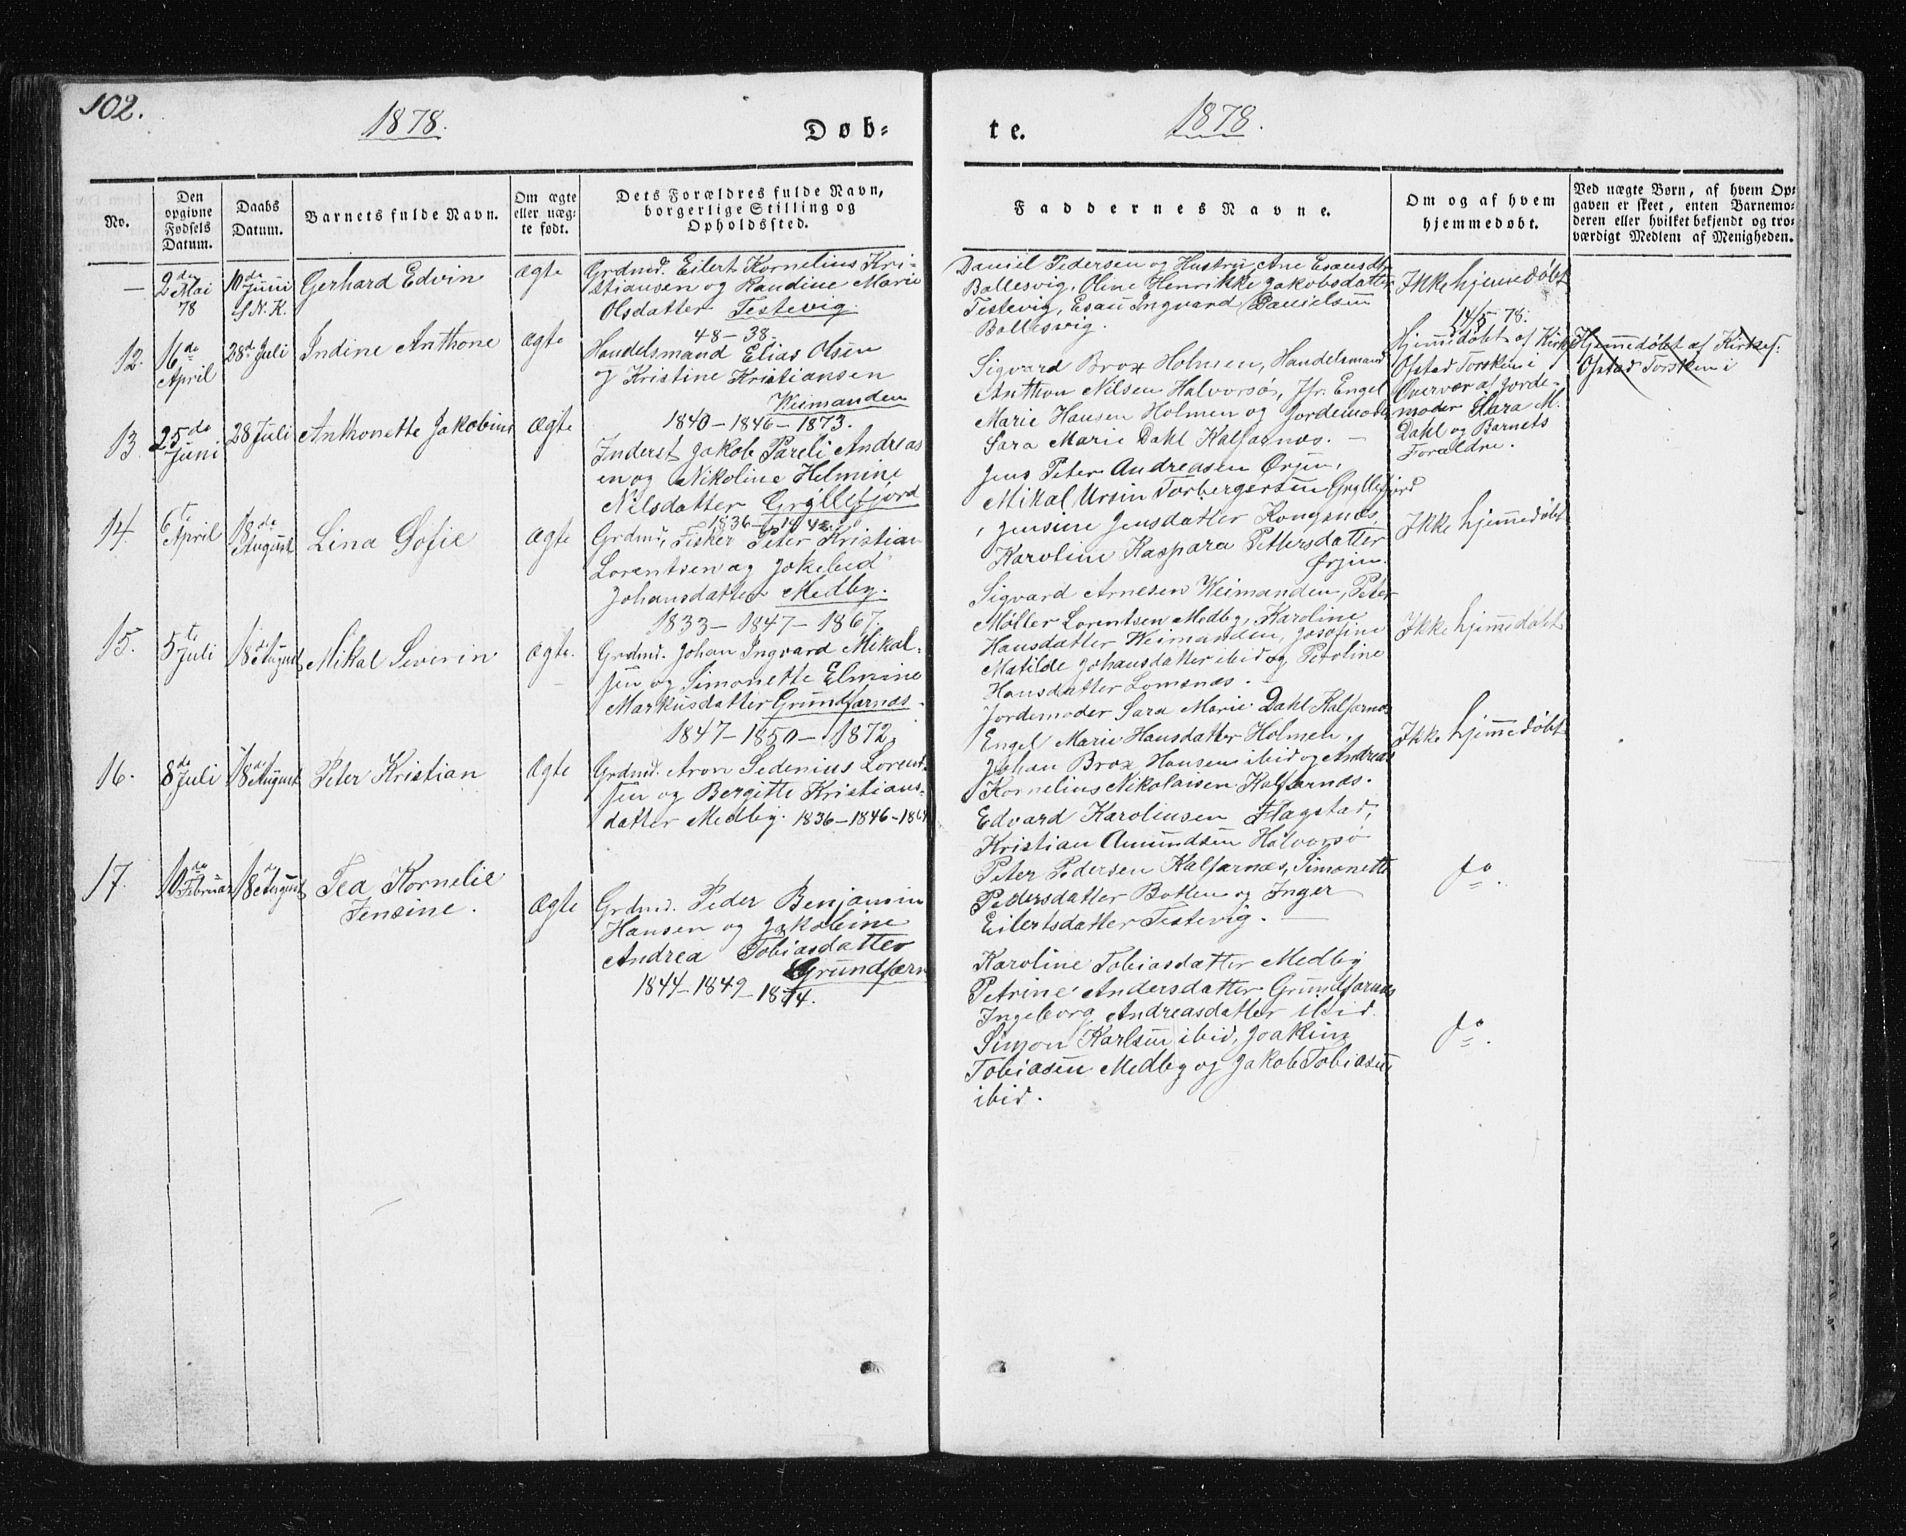 102.
1878.
Døb-
No.
Den opgivne Fødsels Datum.
Daabs Datum.
Barnets fulde Navn.
Om ægte eller uægte født.
Dets Forældres fulde Navn, borgerlige Stilling og Opholdssted.
—
2den Mai 78
10de Juni S.N.K.
Gerhard Edvin
Ægte
Grdmd. Eilert Kornelius Kri-
stiansen og Randine Marie
Olsdatter Testevig.
48-38.
12.
16de April
28de Juli
Indine Anthone
Ægte
Handelsmand Elias Olsen
og Kristine Kristiansen
Weimanden
1840-1846-1873.
13.
25de Juni
28 Juli
Anthonette Jakobine
Ægte
Inderst Jakob Pareli Andreas
en og Nikoline Helmine
Nilsdatter Gryllefjord
14.
6te April
18de August
Lina Sofie
Ægte
Grdmd., Fisker Peter Kristian
Lorentsen og Jakebed
Johansdatter Medby.
1833-1847-1867.
15.
5te Juli
18de August
Mikal Severin
Ægte.
Grdmd. Johan Ingvard Mikal-
sen og Simonette Elmine
Markusdatter Grundfarnæs
1847-1850-1872.
16.
8de Juli
18de August
Peter Kristian
Ægte
Grdmd. Aron Sedenius Lorent-
sen og Bergitte Kristians-
datter Medby. 1836-1846-186
17.
10de Februar
18de August
Tea Kornelie
Jensine.
Ægte
Grdmd. Peder Benjamin
Hansen og Jakobine
Andrea Tobiasdatter
Grundfarn
1844-1849-1874.
te.
1878.
Faddernes Navne.
Om og af hvem hjemmedøbt.
Ved uægte Børn, af hvem Op-
gaven er skeet, enten Barnemo-
deren eller hvilket bekjendt og tro-
værdigt Medlem af Menigheden.
Daniel Pedersen og Hustru Ane Esausdtr
Ballesvig, Oline Henrikke Jakobsdatter
Testevig, Esau Ingvard Danielsen
Ballesvig.
Ikke hjemmedøbt
Sigvard Brox Holmen, Handelsmand
Anthon Nilsen Halvorsø, Jfr. Engel
Marie Hansen Holmen og Jordemoder
Sara Marie Dahl Kalfarnæs. —
14/5-78.
Hjemmedøbt af Kirkes.
Ofstad Torsken i
Overvær af Jorde-
moder Sara M.
Dahl og Barnets
Forældre.
Hjemmedøbt af Kirkes.
Ofstad Torsken i
Jens Peter Andreasen Ørjen,
Mikal Ursin Torbergersen Gryllefjord
, Jensine Jensdatter Kongsnæs,
Karoline Kaspara Pettersdatter
Ørjen.
Ikke hjemmedøbt
Sigvard Arnesen Weimanden, Peter
Møller Lorentsen Medby, Karoline
Hansdatter Weimanden, Josefine
Matilde Johansdatter ibid og Petoline
Hansdatter Lomsnæs.
Ikke hjemmedøbt
Jordemoder Sara Marie Dahl Kalfarnæs
Engel Marie Hansdatter Holmen,
Johan Brox Hansen ibid og Andreas
Kornelius Nikolaisen Kalfarnæs.
Ikke hjemmedøbt
Edvard Karolinsen Flagstad,
Kristian Amundsen Halvorsø
Peter Pedersen Kalfarnæs, Simonette
Pedersdatter Botten og Inger
Eilertsdatter Testevig. —
do.
Karoline Tobiasdatter Medby
Petrine Andersdatter Grundfarnæs
Ingeborg Andreasdatter ibid.
Simon Karlsen ibid, Joakim
Tobiasen Medby og Jakob Tobiasen
ibid.
do.